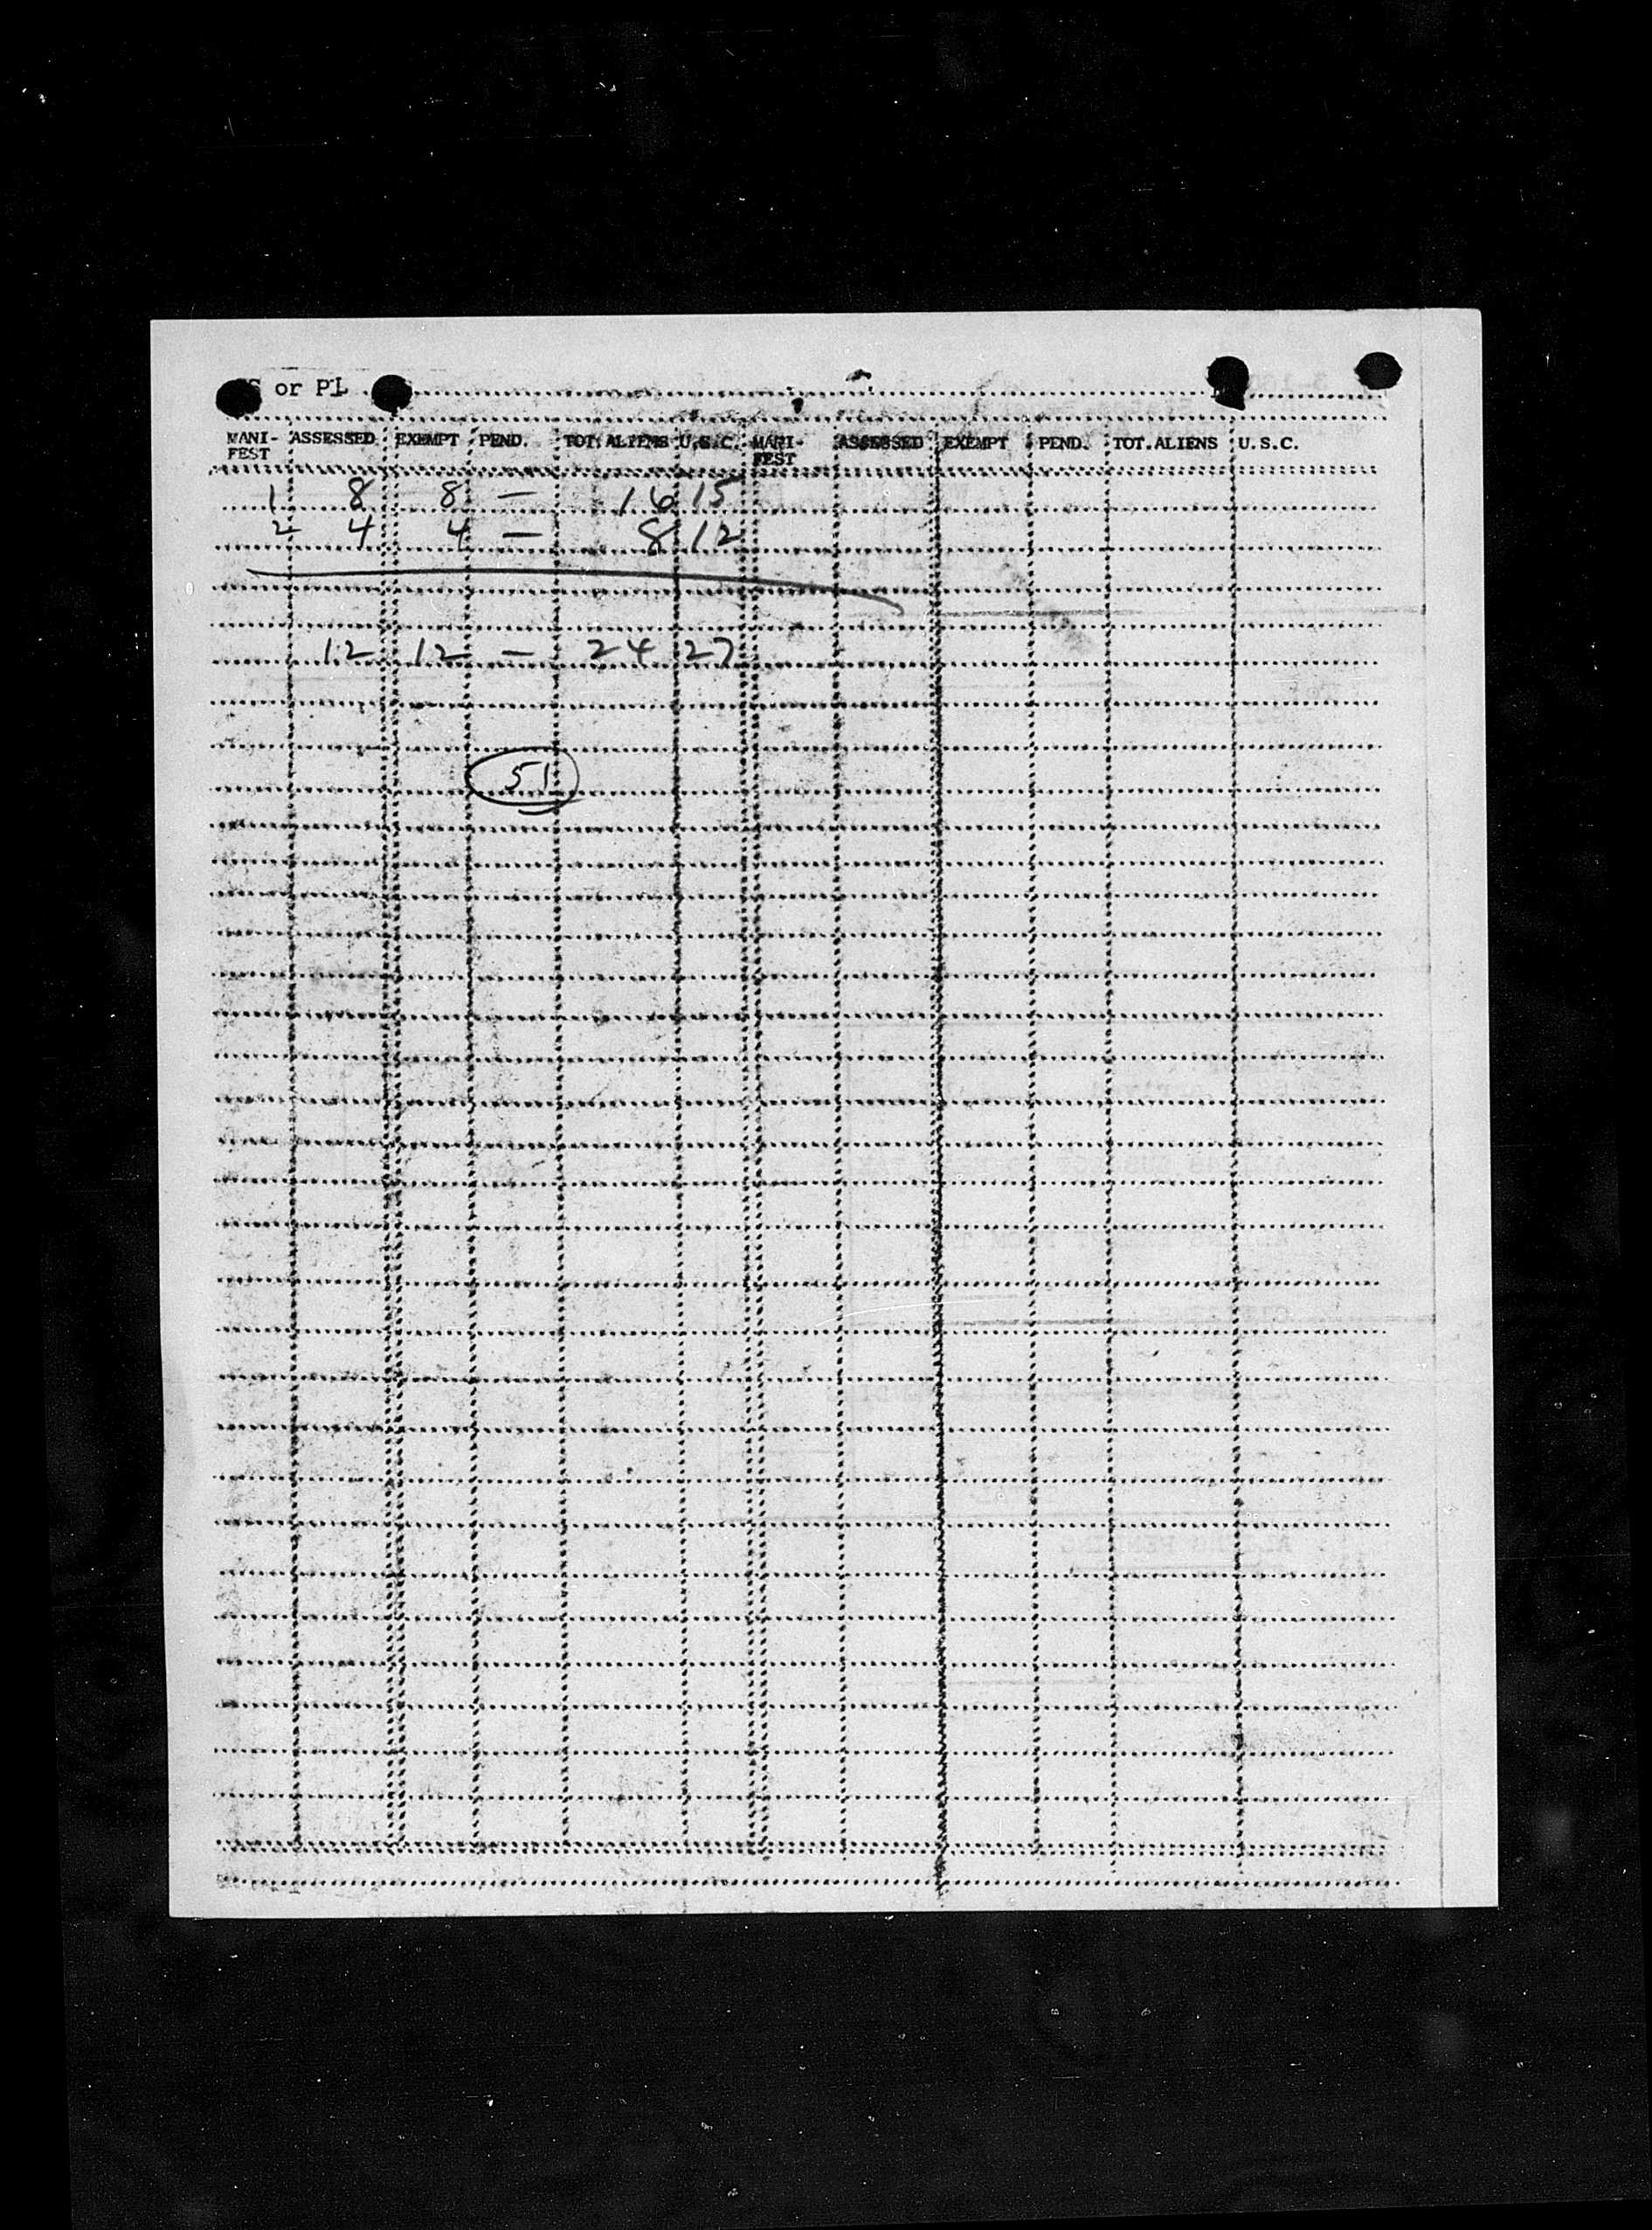 S or PL
MANI- ASSESSED EXEMPT PEND. TOT. ALIENS U.S.C. MANI- ASSESSED EXEMPT PEND. TOT. ALIENS U.S.C.
FEST FEST
1 8 8 — 16 15
2 4 4 — 8 12
12 12 — 24 27
51